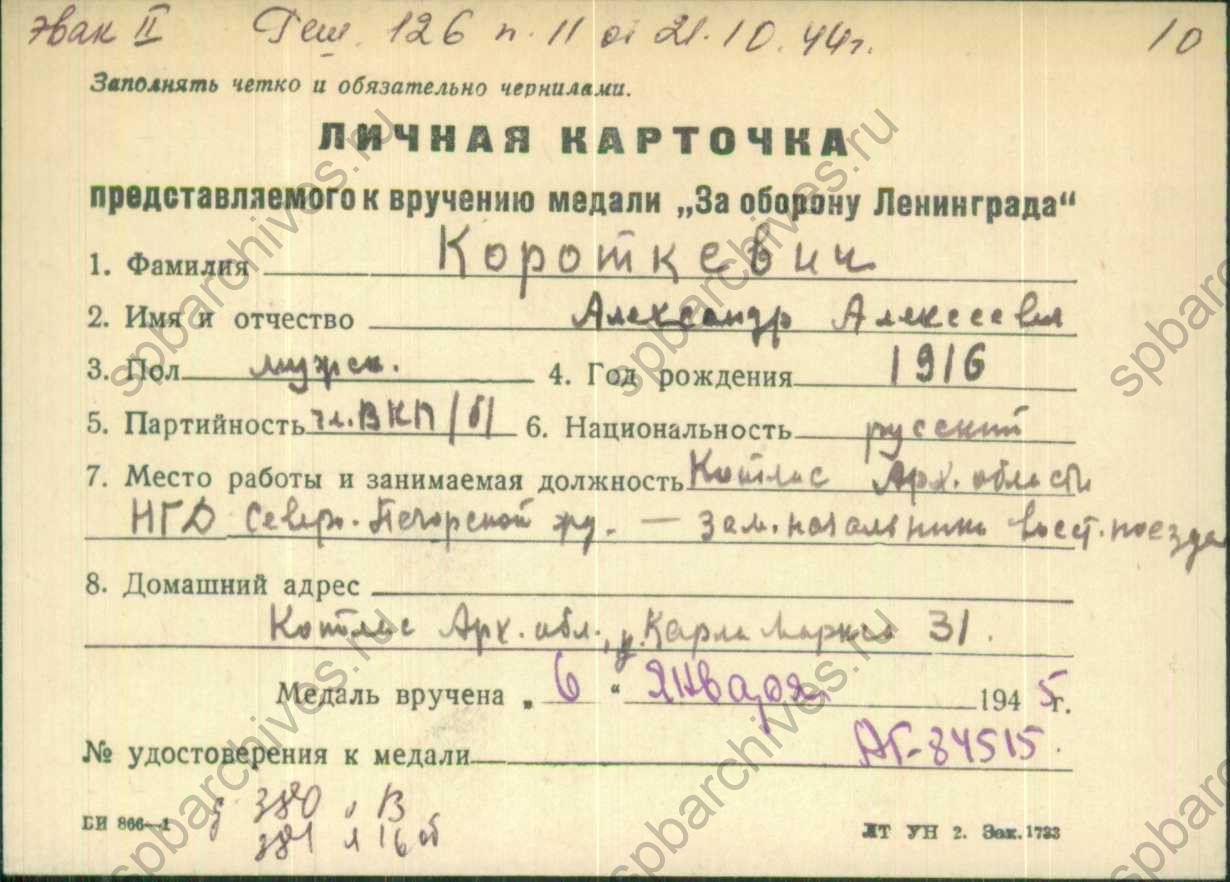 Эвак II Реш. 126 п. 11 от 21.10.44г. 10
Заполнять четко и обязательно чернилами.
ЛИЧНАЯ КАРТОЧКА
представляемого к вручению медали „За оборону Ленинграда“
1. Фамилия Короткевич
2. Имя и отчество Александр Алексеевич
3. Пол мужск. 4. Год рождения 1916
5. Партийность чл. ВКП/б/ 6. Национальность русский
7. Место работы и занимаемая должность Котлас Арх. области
НГД Северо-Печорской жд. — зам. начальника восст. поезда
8. Домашний адрес
Котлас Арх. обл., у. Карла Маркса 31.
Медаль вручена „ 6 “ Января 1945 г.
№ удостоверения к медали АГ-84515.
д 380 л 13
381 л 16 об
БИ 866—1 ЛТ УН 2. Зак. 1733
spbarchives.ru